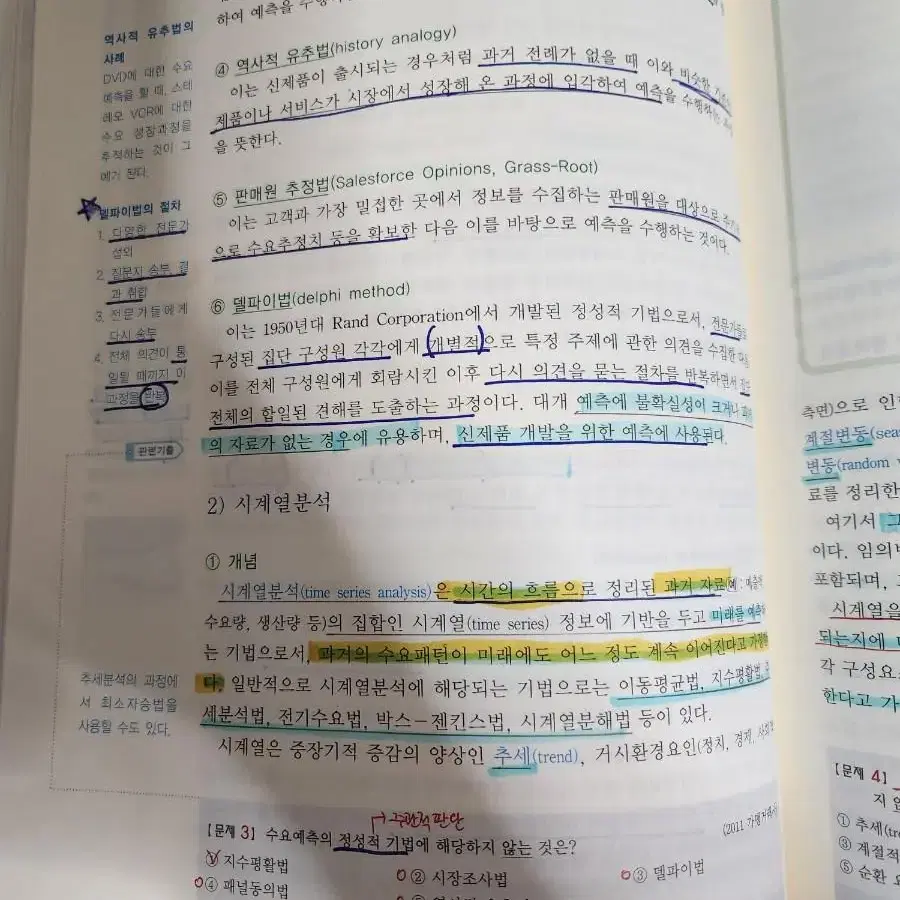 하여 예측을 수행
역사적 유추법의
사례
DVD에 대한 수요
예측을 할 때, 스테
레오 VCR에 대한
수요 성장과정을
추적하는 것이 그
예가 된다.
델파이법의 절차
1. 다양한 전문가
섭외
2. 질문지 송부, 결
과 취합
3. 전문가들에게
다시 송부
4. 전체 의견이 통
일될 때까지 이
과정을 반복
관련기출
추세분석의 과정에
서 최소자승법을
사용할 수도 있다.
④ 역사적 유추법(history analogy)
이는 신제품이 출시되는 경우처럼 과거 전례가 없을 때 이와 비슷한
제품이나 서비스가 시장에서 성장해 온 과정에 입각하여 예측을 수행하는
을 뜻한다.
⑤ 판매원 추정법(Salesforce Opinions, Grass-Root)
이는 고객과 가장 밀접한 곳에서 정보를 수집하는 판매원을 대상으로
으로 수요추정치 등을 확보한 다음 이를 바탕으로 예측을 수행하는 것이다.
⑥ 델파이법(delphi method)
이는 1950년대 Rand Corporation에서 개발된 정성적 기법으로서, 전문가들로
구성된 집단 구성원 각각에게 (개별적)으로 특정 주제에 관한 의견을 수집한
이를 전체 구성원에게 회람시킨 이후 다시 의견을 묻는 절차를 반복하면서
전체의 합일된 견해를 도출하는 과정이다. 대개 예측에 불확실성이 크거나
의 자료가 없는 경우에 유용하며, 신제품 개발을 위한 예측에 사용된다.
2) 시계열분석
① 개념
시계열분석(time series analysis)은 시간의 흐름으로 정리된 과거 자료(예 : 매출액,
수요량, 생산량 등)의 집합인 시계열(time series) 정보에 기반을 두고 미래를 예측하
는 기법으로서, 과거의 수요패턴이 미래에도 어느 정도 계속 이어진다고 가정한
다. 일반적으로 시계열분석에 해당되는 기법으로는 이동평균법, 지수평활법, 추
세분석법, 전기수요법, 박스-젠킨스법, 시계열분해법 등이 있다.
시계열은 중장기적 증감의 양상인 추세(trend), 거시환경요인(정치, 경제, 사회
주관적 판단
【문제 3】 수요예측의 정성적 기법에 해당하지 않는 것은?
(2011 가맹거래사)
① 지수평활법
② 시장조사법
③ 델파이법
④ 패널동의법
측면)으로 인
계절변동(sea
변동(random v
료를 정리한
여기서 그
이다. 임의
포함되며,
시계열을
되는지에
각 구성요
한다고 가
【문제 4】
지 않
① 추세(tre
③ 계절적
⑤ 순환